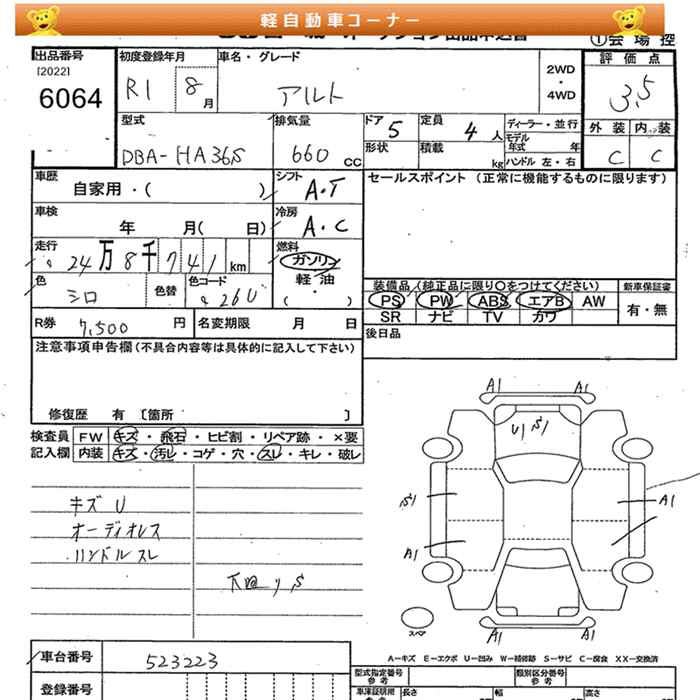 軽自動車コーナー
①会場控
出品番号
[2022]
6064
初度登録年月
R1 8月
車名・グレード
アルト
2WD
・
4WD
評価点
3.5
型式
DBA-HA36S
排気量
660 cc
ドア 5
定員 4人
形状
積載 kg
ディーラー・並行
モデル年式 年
ハンドル 左・右
外装 内装
C C
車歴
自家用・( )
シフト
A・T
セールスポイント (正常に機能するものに限ります)
車検
年 月( 日)
冷房
A・C
走行
24万8千741km
燃料
ガソリン
軽油
( )
色
シロ
色替
色コード
26U
装備品(純正品に限り○をつけてください)
新車保証書
PS PW ABS エアB AW
SR ナビ TV カワ
有・無
R券 7,500 円
名変期限 月 日
後日品
注意事項申告欄(不具合内容等は具体的に記入して下さい)
修復歴 有 [箇所 ]
検査員記入欄
FW キズ・飛石・ヒビ割・リペア跡・×要
内装 キズ・汚レ・コゲ・穴・スレ・キレ・破レ
キズ U
オーディオレス
ハンドルスレ
下廻リS
A1 A1
U1 S1
S1
A1
A1
A1 A1
スペア
A-キズ E-エクボ U-凹み W-補修跡 S-サビ C-腐食 XX-交換済
車台番号
523223
登録番号
型式指定番号
参考
類別区分番号
参考
車庫証明用
参考
長さ
幅
高さ